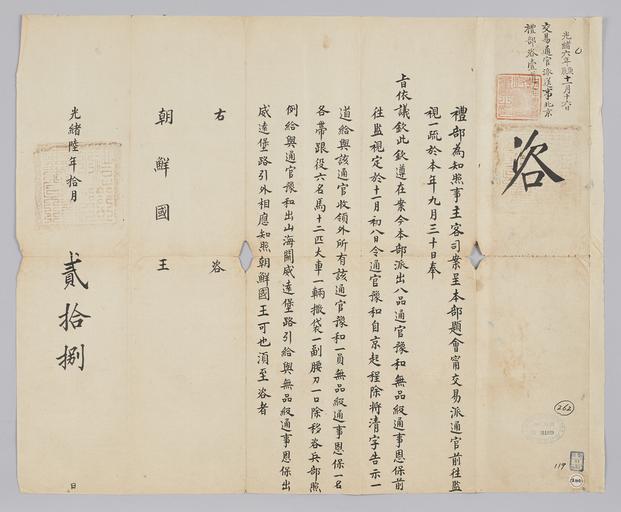 光緒六年庚辰十一月十六日
交易通官派送事北京
禮部咨壹
咨
禮部為知照事主客司案呈本部題會甯交易派通官前往監
視一疏於本年九月三十日奉
旨依議欽此欽遵在案今本部派出八品通官豫和無品級通事恩保前
往監視定於十一月初八日令通官豫和自京起程除將清字告示一
道給與該通官收領外所有該通官豫和一員無品級通事恩保一名
各帶跟役六名馬十二匹大車一輛撒袋一副腰刀一口除移咨兵部照
例給與通官豫和出山海關威遠堡路引給與無品級通事恩保出
威遠堡路引外相應知照朝鮮國王可也須至咨者
右 咨
朝鮮國王
光緒陸年拾月 貳拾捌 日
262
119